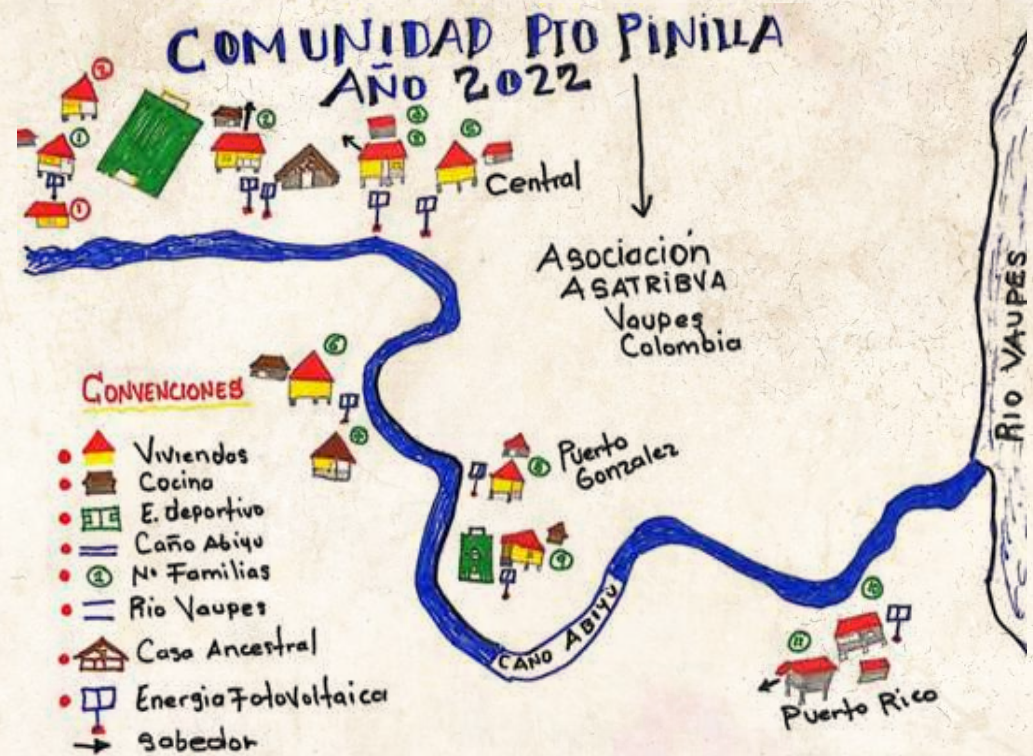 COMUNIDAD PTO PINILLA
AÑO 2022
Central
Asociación
ASATRIBVA
Vaupes
Colombia
RIO VAUPES
CONVENCIONES
Viviendas
Cocina
E. deportivo
Caño Abiyu
② Nº Familias
Rio Vaupes
Casa Ancestral
Energia Fotovoltaica
Sabedor
Puerto
Gonzalez
CAÑO ABIYU
Puerto Rico
①
②
⑥
⑧
⑨
⑪